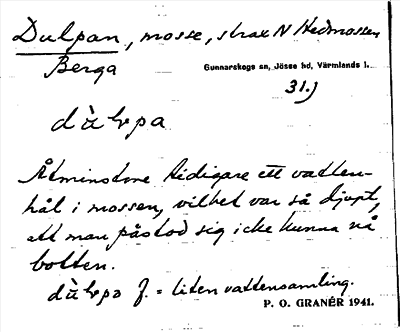 Dulpan, mosse, strax N Hedmossen
Berga
Gunnarskogs sn, Jösse hd, Värmlands l.
31.j
Åtminstone tidigare ett vatten-
hål i mossen, vilket var så djupt,
att man påstod sig icke kunna nå
botten.
f. = liten vattensamling.
P. O. GRANÉR 1941.